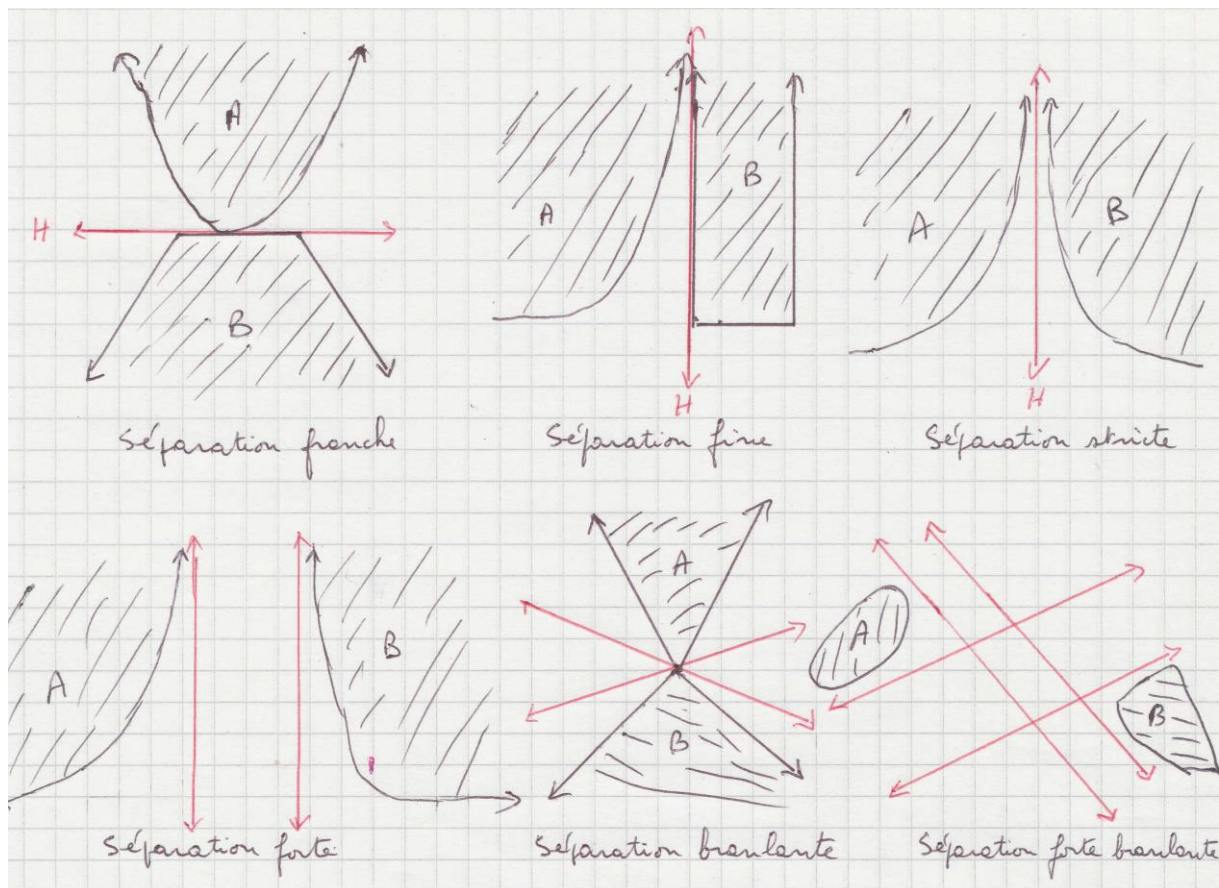 A
H
B
Séparation franche
A
B
H
Séparation fine
A
B
H
Séparation stricte
A
B
Séparation forte
A
B
Séparation branlante
A
B
Séparation forte branlante